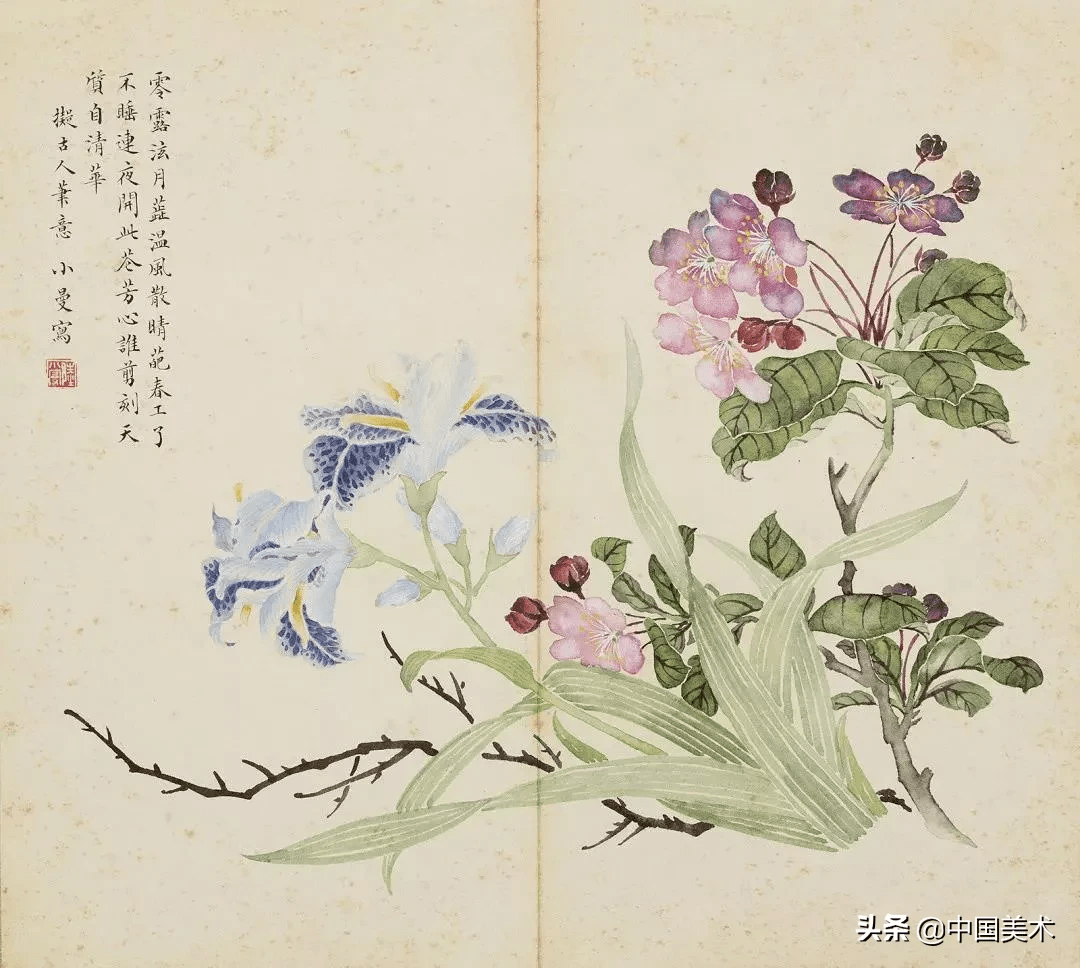 零露泫月蕋溫風散晴葩春工了
不睡連夜開此花芳心誰剪刻天
質自清華
擬古人筆意 小曼寫
陸小曼
头条 @中国美术